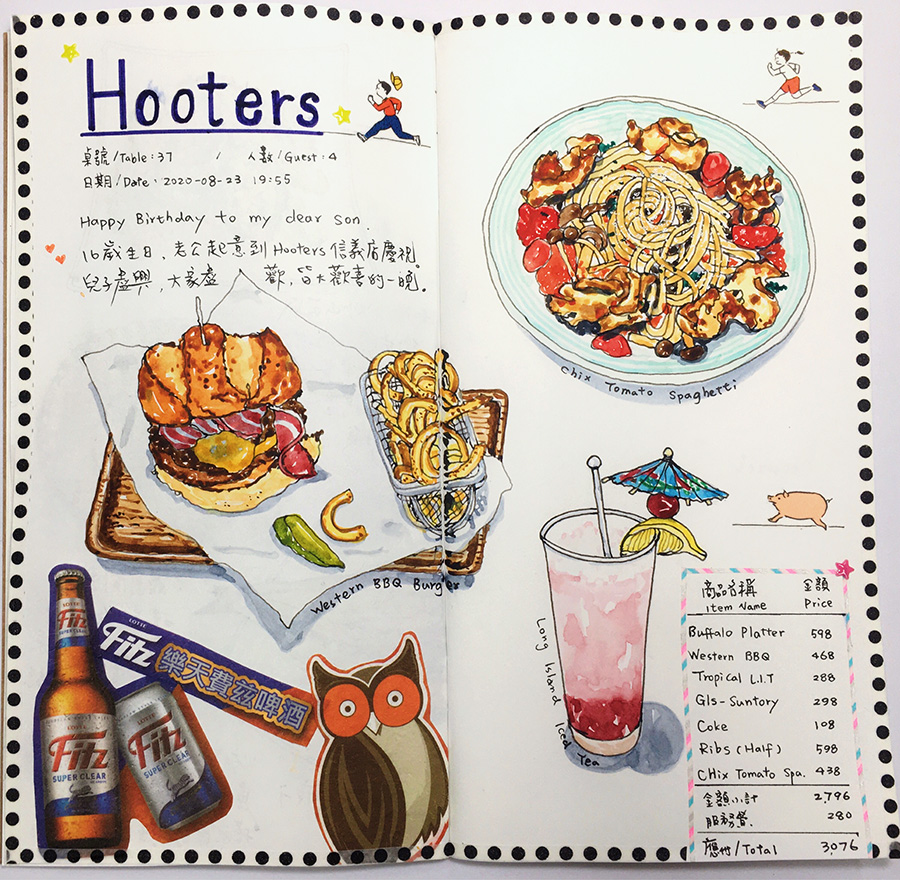 Hooters
桌號/Table：37 / 人數/Guest：4
日期/Date：2020-08-23 19:55
Happy Birthday to my dear son.
16歲生日，老公起意到Hooters信義店慶祝
兒子盡興，大家盡歡，皆大歡喜的一晚。
Chix Tomato Spaghetti
Western BBQ Burger
Long Island Iced Tea
LOTTE
Fitz
SUPER CLEAR
LOTTE
Fitz
樂天費茲啤酒
LOTTE
Fitz
SUPER CLEAR
LOTTE
Fitz
SUPER CLEAR
商品名稱 金額
Item Name Price
Buffalo Platter 598
Western BBQ 468
Tropical L.I.T 288
Gls-Suntory 298
Coke 108
Ribs (Half) 598
Chix Tomato Spa. 438
金額小計 2,796
服務費 280
應付/Total 3,076